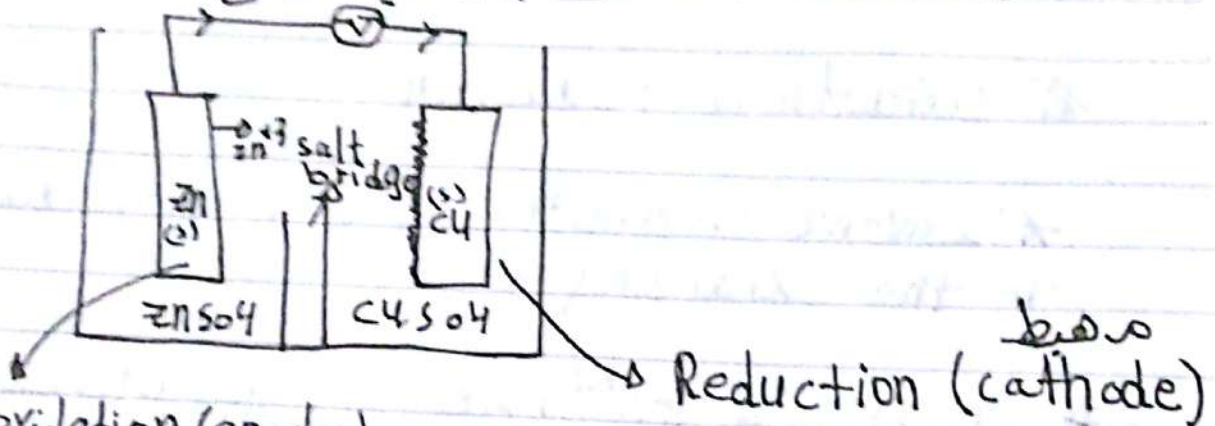 V
zn+2 salt
bridge
zn
(s)
(s)
cu
znso4
cuso4
Reduction (cathode)
oxidation (anode)